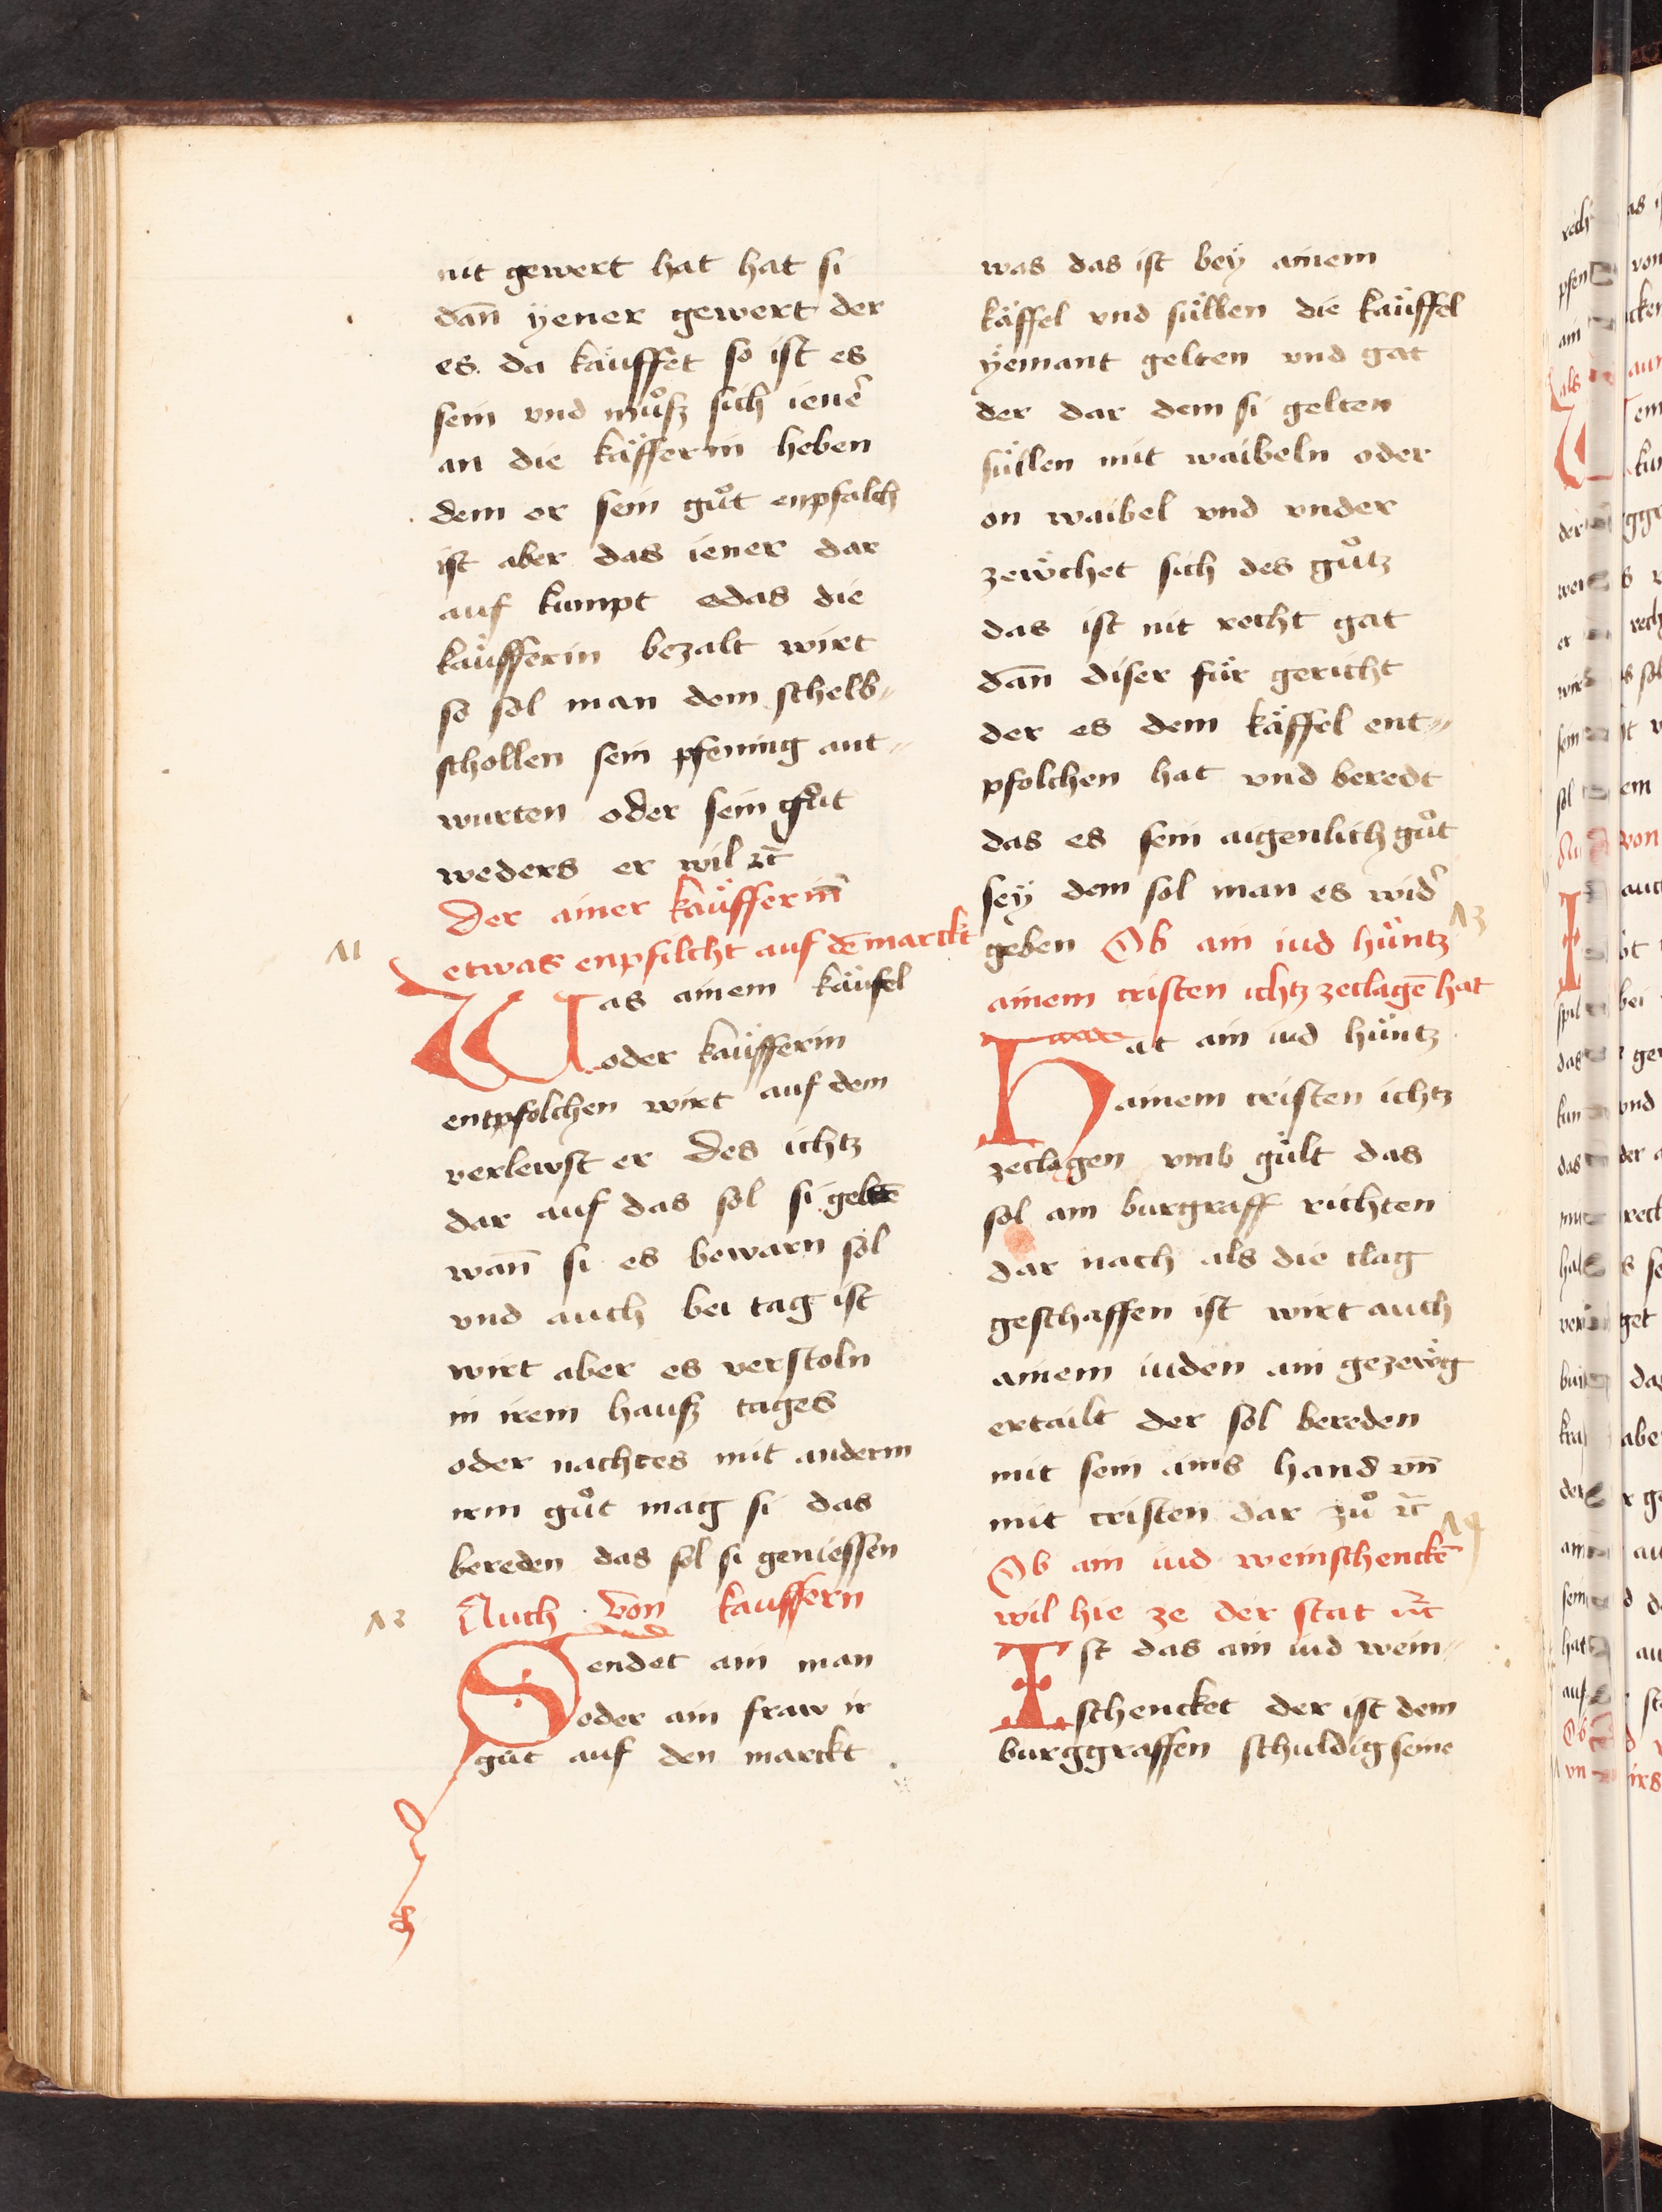 nit gewert hat hat si
dan̄ ÿener gewert der
es da kauffet so ist es
sein vnd muͦsz sich ienē
an die käfferin heben
dem er sein guͦt enpfalch
ist aber das iener dar
auf kumpt edas die
käufferin bezalt wirt
so sol man dem schelb〃
schollen sein pfening ant〃
wurten oder sein guͦt
weders er wil ꝛc̄
Der ainer käufferin̄
etwas enpfilcht auf dē marckt
11
Was ainem käufel
oder käufferin
entpfolchen wirt auf dem
verlewst er des ichtz
dar auf das sol si geltē
wan̄ si es bewarn sol
vnd auch bei tag ist
wirt aber es verstoln
in irem hausz tages
oder nachtes mit anderm
irm guͦt mag si das
bereden das sol si geniessen
12
Auch von kauffern
Sendet ain man
oder ain fraw ir
guͦt auf den marckt
was das ist bey ainem
käffel vnd süllen die käuffel
ÿemant gelten vnd gat
der dar dem si gelten
süllen mit waibeln oder
on waibel vnd vnder
zewchet sich des guͦtz
das ist nit recht gat
dan̄ diser für gericht
der es dem käffel ent〃
pfolchen hat vnd beredt
das es sein aigenlich guͦt
seÿ dem sol man es widē
13
geben Ob ain iud hüntz
ainem cristen ichtz zeclagē hat
Hat ain iud hüntz
ainem cristen ichtz
zeclagen vmb gült das
sol ain burgraff richten
dar nach als die clag
geschaffen ist wirt auch
ainem iuden ain gezewg
ertailt der sol bereden
mit sein ains hand vn̄
mit cristen dar zuͦ ꝛc̄
14
Ob ain iud weinschenckē
wil hie ze der stat ꝛc̄
Ist das ain iud wein〃
schencket der ist dem
burggraffen schuldig seine